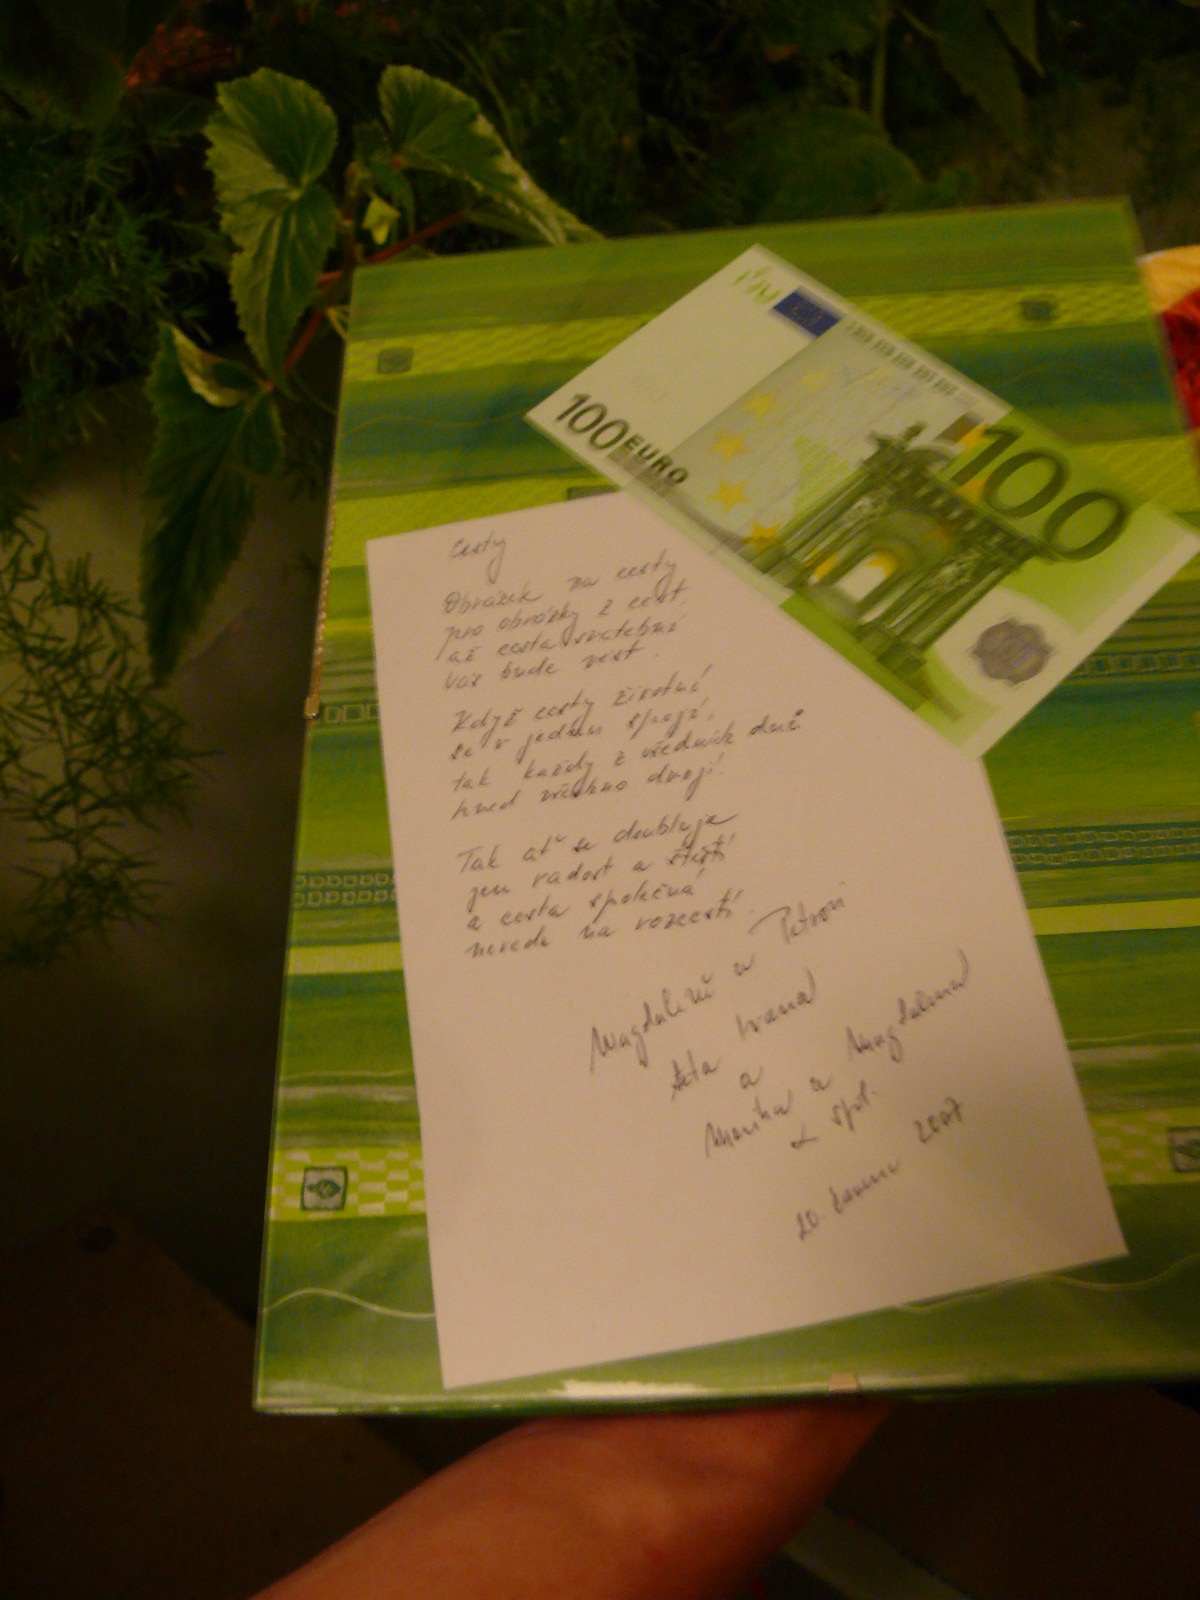 100 EURO
100
Cesty
Obrázek na cesty
pro obrázky z cest,
až cesta svatební
vás bude vést.
Když cesty životní
se v jednu spojí,
tak každý z všedních dnů
hned všechno dvojí.
Tak ať se doubluje
jen radost a štěstí
a cesta společná
nevede na rozcestí.
Magdaléně a Petrovi
teta Ivana
a
Monika a Magdalena
& spol.
20. 2007